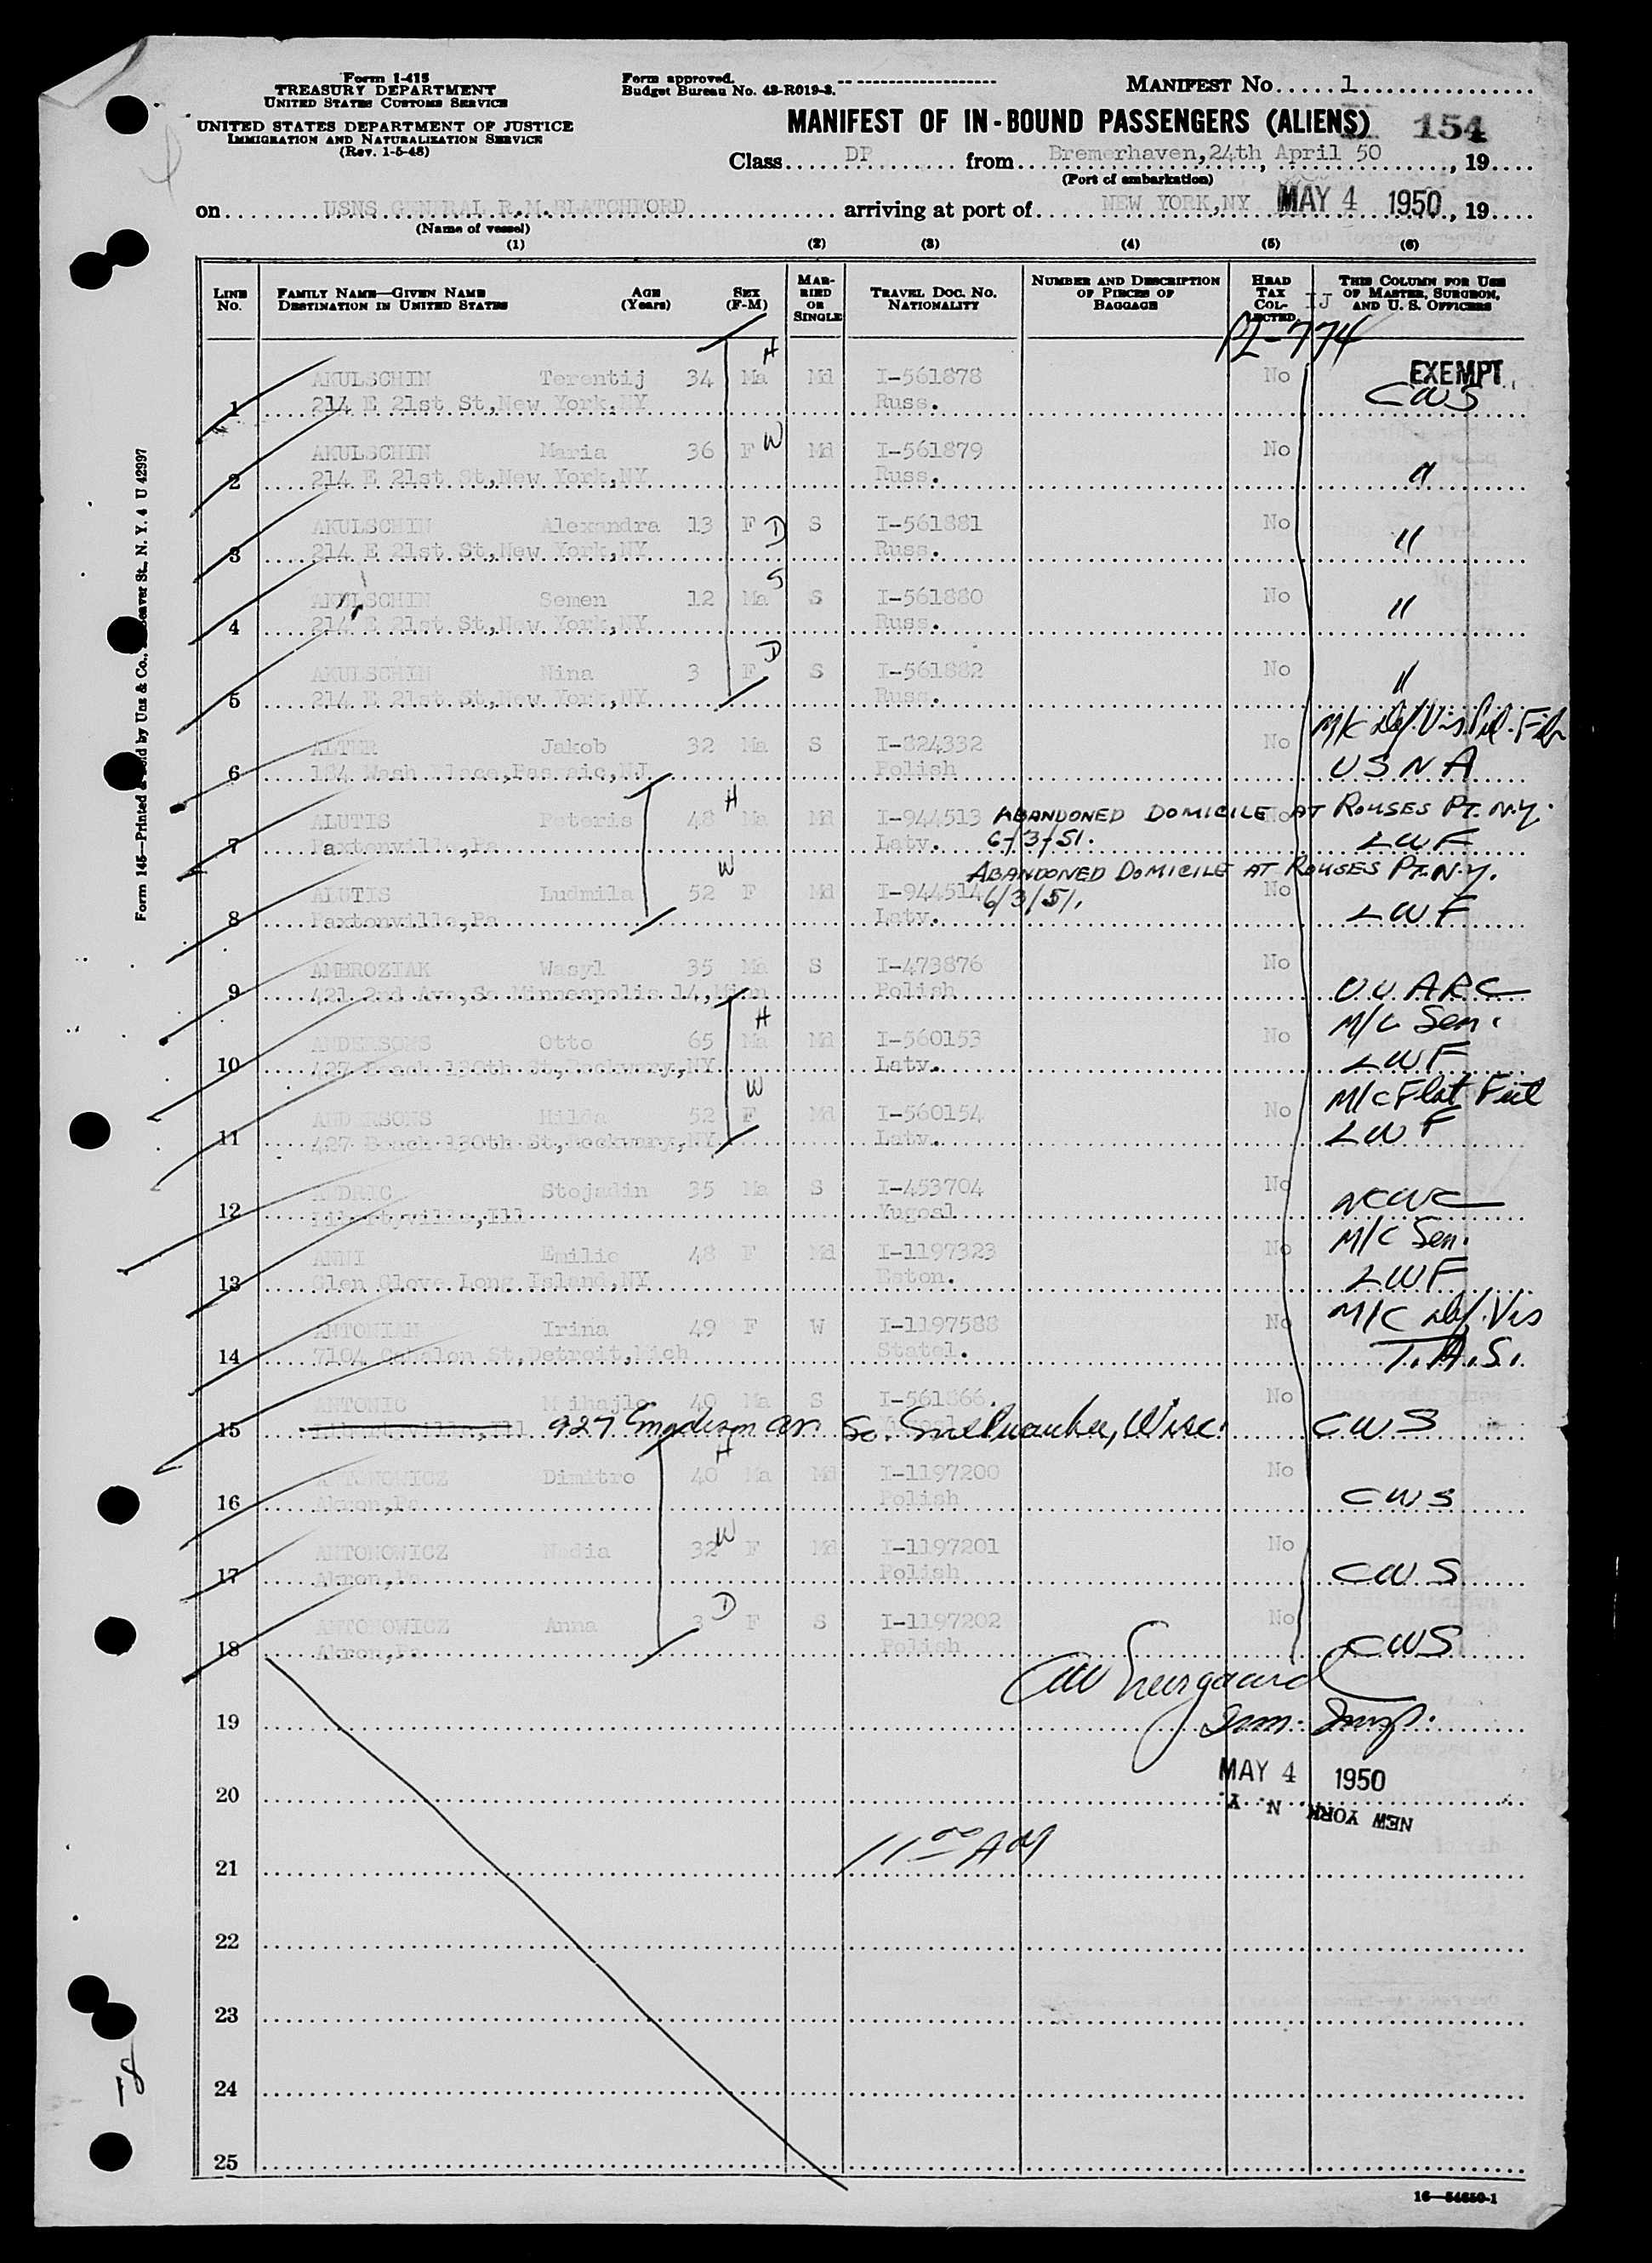 Form I-415
TREASURY DEPARTMENT
UNITED STATES CUSTOMS SERVICE
UNITED STATES DEPARTMENT OF JUSTICE
IMMIGRATION AND NATURALIZATION SERVICE
(Rev. 1-5-48)
Form approved.
Budget Bureau No. 43-R019-3.
MANIFEST No. 1
MANIFEST OF IN-BOUND PASSENGERS (ALIENS) 154
Class DP from Bremerhaven, 24th April 50, 19
(Port of embarkation)
on USNS GENERAL R.M. BLATCHFORD arriving at port of NEW YORK, NY MAY 4 1950, 19
(Name of vessel)
(1) (2) (3) (4) (5) (6)
LINE No. FAMILY NAME—GIVEN NAME DESTINATION IN UNITED STATES AGE (Years) SEX (F-M) MARRIED OR SINGLE TRAVEL DOC. No. NATIONALITY NUMBER AND DESCRIPTION OF PIECES OF BAGGAGE HEAD TAX COLLECTED THIS COLUMN FOR USE OF MASTER, SURGEON, AND U. S. OFFICERS
IJ
PL-774
AKULSCHIN Terentij 34 Ma H Md I-561878 No EXEMPT
1 214 E 21st St, New York, NY Russ. CWS
AKULSCHIN Maria 36 F W Md I-561879 No
2 214 E 21st St, New York, NY Russ. "
AKULSCHIN Alexandra 13 F D S I-561881 No
3 214 E 21st St, New York, NY Russ. "
AKULSCHIN Semen 12 Ma S S I-561880 No
4 214 E 21st St, New York, NY Russ. "
AKULSCHIN Nina 3 F D S I-561882 No
5 214 E 21st St, New York, NY Russ. "
ALTER Jakob 32 Ma S I-824332 No M/C Def. Vis.
6 184 Wash Place, Passaic, NJ Polish USNA
ALUTIS Peteris 48 H Ma Md I-944513 ABANDONED DOMICILE AT ROUSES PT. N.Y. No
7 Paxtonville, Pa Latv. 6/3/51. LWF
ABANDONED DOMICILE AT ROUSES PT. N.Y.
ALUTIS Ludmila 52 W F Md I-944514 6/3/51. No
8 Paxtonville, Pa Latv. LWF
AMBROZIAK Wasyl 35 Ma S I-473876 No
9 421 2nd Ave, So Minneapolis 14, Minn Polish UUARC
ANDERSONS Otto 65 Ma H Md I-560153 No M/C Sen.
10 427 Beach 130th St, Rockvary, NY Latv. LWF
ANDERSONS Hilda 52 F W Md I-560154 No M/C Flat Feet
11 427 Beach 130th St, Rockvary, NY Latv. LWF
ANDRIC Stojadin 35 Ma S I-453704 No
12 Libertyville, Ill Yugosl NCWC
ANNI Emilie 48 F Md I-1197323 No M/C Sen.
13 Glen Clove Long Island, NY Eston. LWF
ANTONIAN Irina 49 F W I-1197588 No M/C Def. Vis
14 7104 St, Detroit, Mich Statel. T.A.S.
ANTONIC Mihajlo 40 Ma S I-561866 No
15 Libertyville, Ill 927 Madison Av. So. Milwaukee, Wisc. CWS
ANTONOWICZ Dimitro 40 H Ma Md I-1197200 No
16 Akron, Pa Polish CWS
ANTONOWICZ Nadia 32 W F Md I-1197201 No
17 Akron, Pa Polish CWS
ANTONOWICZ Anna 3 D F S I-1197202 No
18 Akron, Pa Polish CWS
19 Imm. Insp.
MAY 4 1950
20 NEW YORK N. Y.
21 11 00 AM
22
23
24
25
16—54650-1
Form 145—Printed & Sold by Unz & Co., Beaver St., N. Y. 4 U 42997